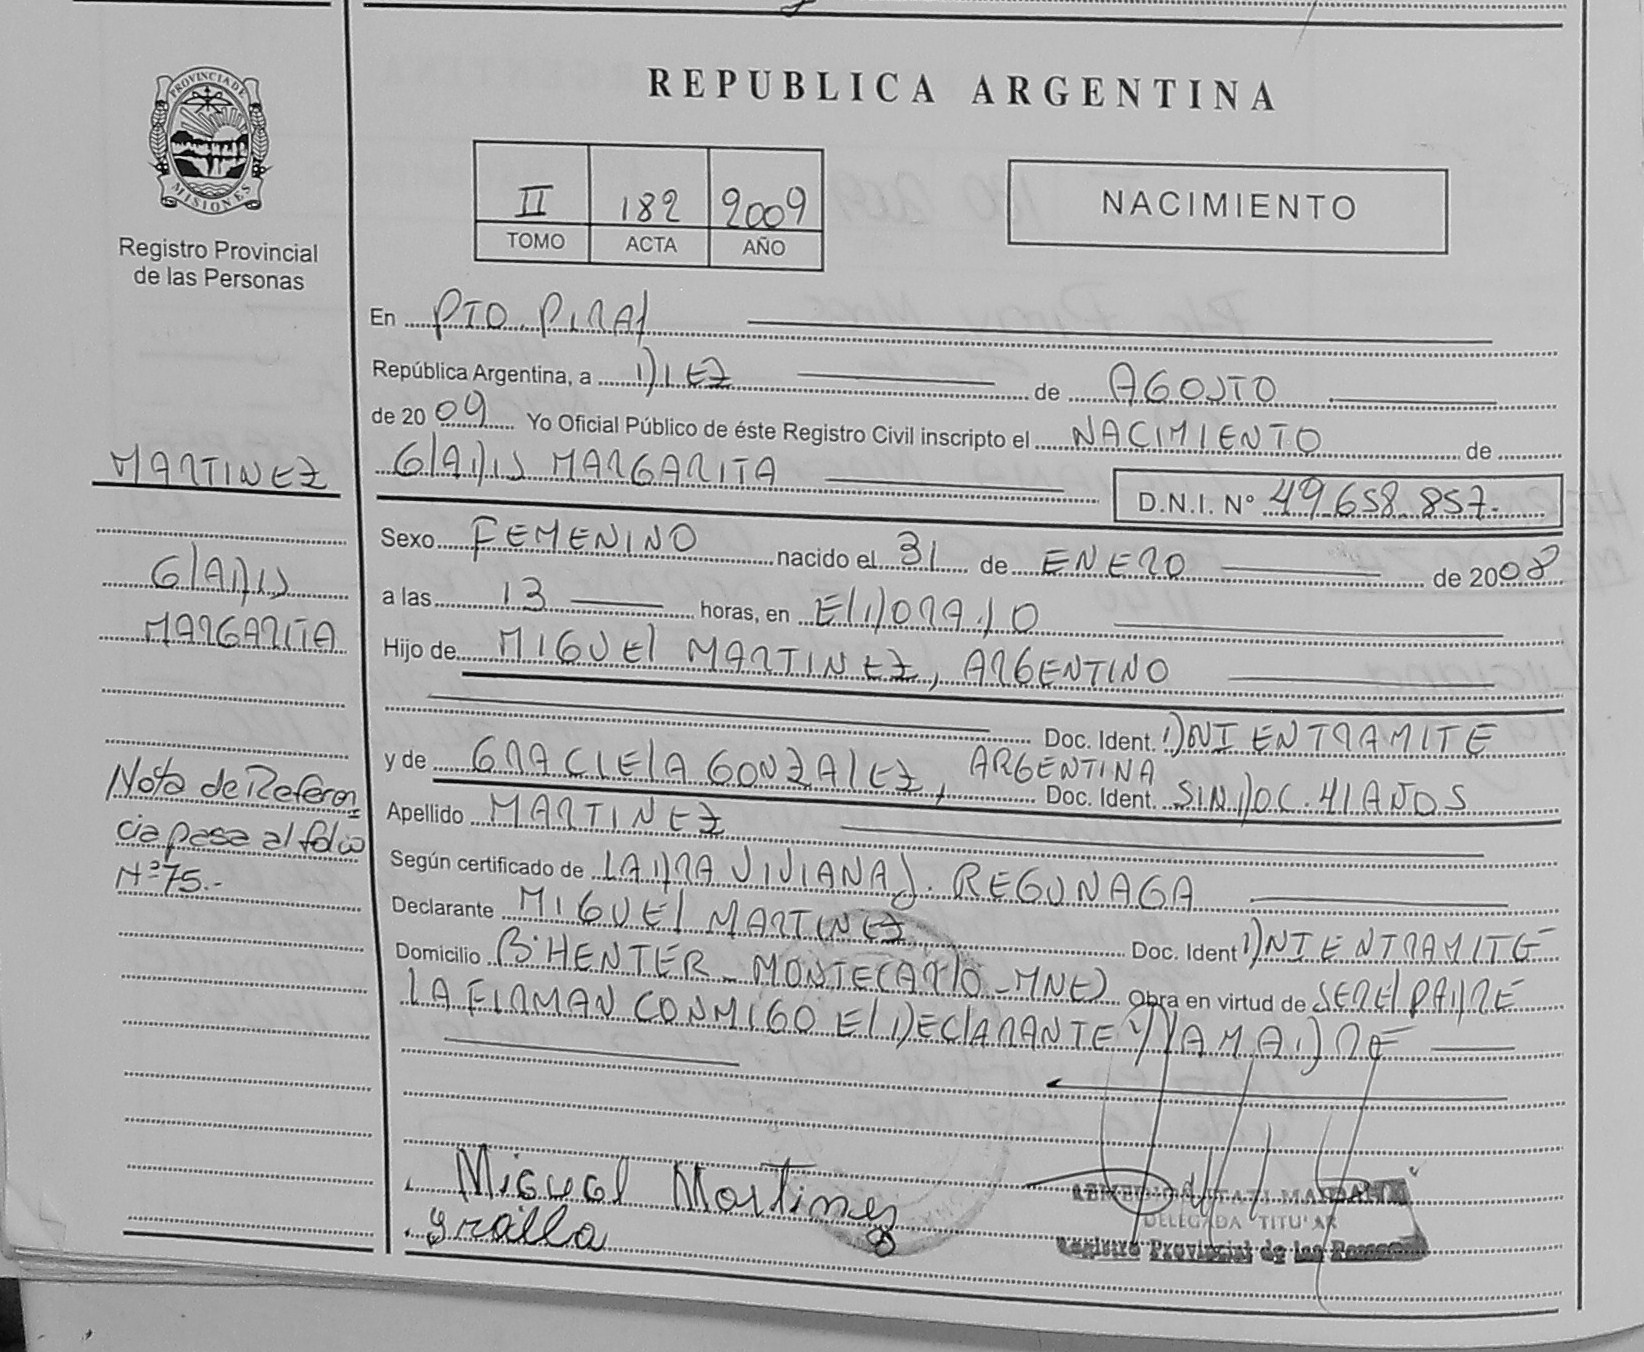 PROVINCIA DE
MISIONES
Registro Provincial
de las Personas
REPUBLICA ARGENTINA
II 182 2009
TOMO ACTA AÑO
NACIMIENTO
En PTO. PIRAY
República Argentina, a DIEZ de AGOSTO
de 2009 Yo Oficial Público de éste Registro Civil inscripto el NACIMIENTO de
GLADIS MARGARITA
D.N.I. Nº 49.658.857.-
Sexo FEMENINO nacido el 31 de ENERO de 2008
a las 13 horas, en ELDORADO
Hijo de MIGUEL MARTINEZ, ARGENTINO
Doc. Ident. DNI EN TRAMITE
y de GRACIELA GONZALEZ, ARGENTINA
Doc. Ident. SIN DOC. 41 AÑOS
Apellido MARTINEZ
Según certificado de LAURA VIVIANA J. REGUNAGA
Declarante MIGUEL MARTINEZ Doc. Ident DNI EN TRAMITE
Domicilio Bº HENTER - MONTECARLO - MNES Obra en virtud de SER EL PADRE
LA FIRMAN CONMIGO EL DECLARANTE Y LA MADRE
Miguel Martinez
DELEGADA TITULAR
Registro Provincial de las Personas
MARTINEZ
GLADIS
MARGARITA
Nota de Referen
cia pasa al folio
Nº 75.-